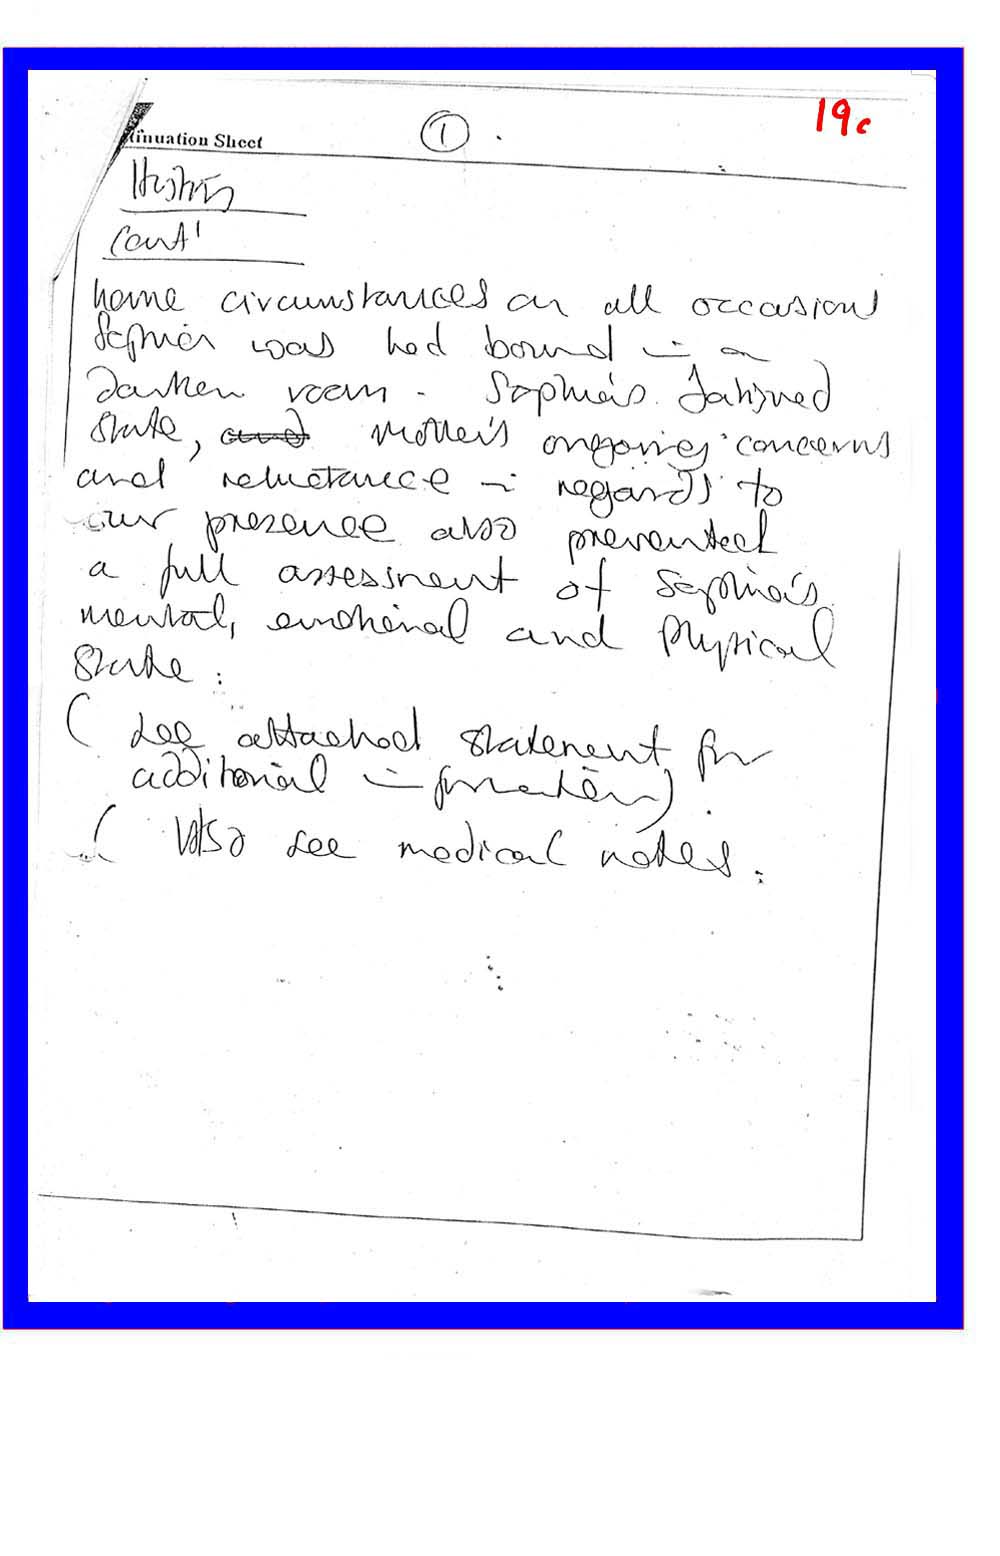 tinuation Sheet
1
19c
History
Cont'
home circumstances on all occasions
Sophia was bed bound in a
darken room. Sophia's fatigued
state, and mother's ongoing concerns
and reluctance in regards to
our presence also prevented
a full assessment of Sophia's
mental, emotional and physical
state.
( see attached statement for
additional information).
( Also see medical notes.